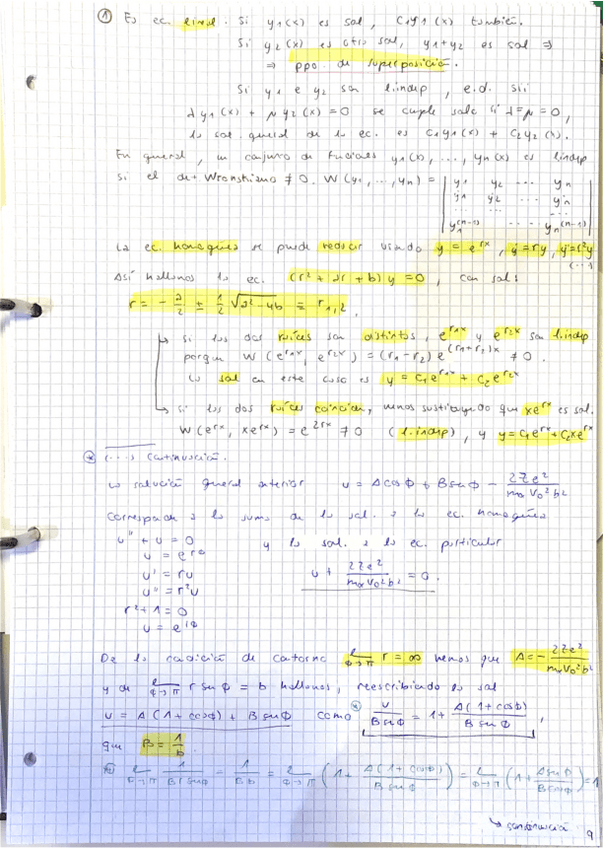 ① Es ec. lineal. Si y₁(x) es sol, C₁y₁(x) también.
Si y₂(x) es otra sol, y₁+y₂ es sol ⇒
⇒ ppo. de superposición.
Si y₁ e y₂ son l.indep, e.d. sii
λy₁(x) + μy₂(x) = 0 se cumple solo si λ=μ=0,
la sol. gneral de la ec. es C₁y₁(x) + C₂y₂(x).
En gneral, un conjunto de funciones y₁(x), ..., yn(x) es lindep
si el det Wronskiano ≠ 0. W(y₁, ..., yn) = | y₁ y₂ ... yn
ẏ₁ ẏ₂ ... ẏn
... ... ...
y₁⁽ⁿ⁻¹⁾ yn⁽ⁿ⁻¹⁾ |
La ec. homogénea se puede resolver usando y = e^{rx}, ẏ = ry, ÿ = r²y
(...)
Así hallamos la ec. (r² + ar + b) y = 0, con sols
r = - a/2 ± 1/2 √(a²-4b) ≡ r₁,₂.
→ si las dos raíces son distintas, e^{r₁x} y e^{r₂x} son l.indep
porque W(e^{r₁x}, e^{r₂x}) = (r₁-r₂) e^{(r₁+r₂)x} ≠ 0.
La sol en este caso es y = C₁e^{r₁x} + C₂e^{r₂x}
→ si las dos raíces coinciden, vemos sustituyendo que xe^{rx} es sol.
W(e^{rx}, xe^{rx}) = e^{2rx} ≠ 0 (l.indep), y y = C₁e^{rx} + C₂xe^{rx}
(...) continuación.
La solución gneral anterior u = A cos φ + B sen φ - 2Ze²/(mα V₀² b²)
corresponde a la suma de la sol. a la ec. homogénea
u'' + u = 0 y la sol. a la ec. particular
u = e^{rφ}
u' = ru u + 2Ze²/(mα V₀² b²) = 0.
u'' = r²u
r² + 1 = 0
u = e^{iφ}
De la condición de contorno l_{φ→π} r = ∞ vemos que A = - 2Ze²/(mα V₀² b²)
y de l_{φ→π} r sen φ = b hallamos, reescribiendo la sol
u = A(1 + cos φ) + B sen φ como u/(B sen φ) = 1 + A(1+cos φ)/(B sen φ),
que B = 1/b.
l_{φ→π} 1/(B r sen φ) = 1/(Bb) = l_{φ→π} (1 + A(1+cos φ)/(B sen φ)) = l_{φ→π} (1 + A sen φ/(B cos φ)) = 1
→ continuación
9